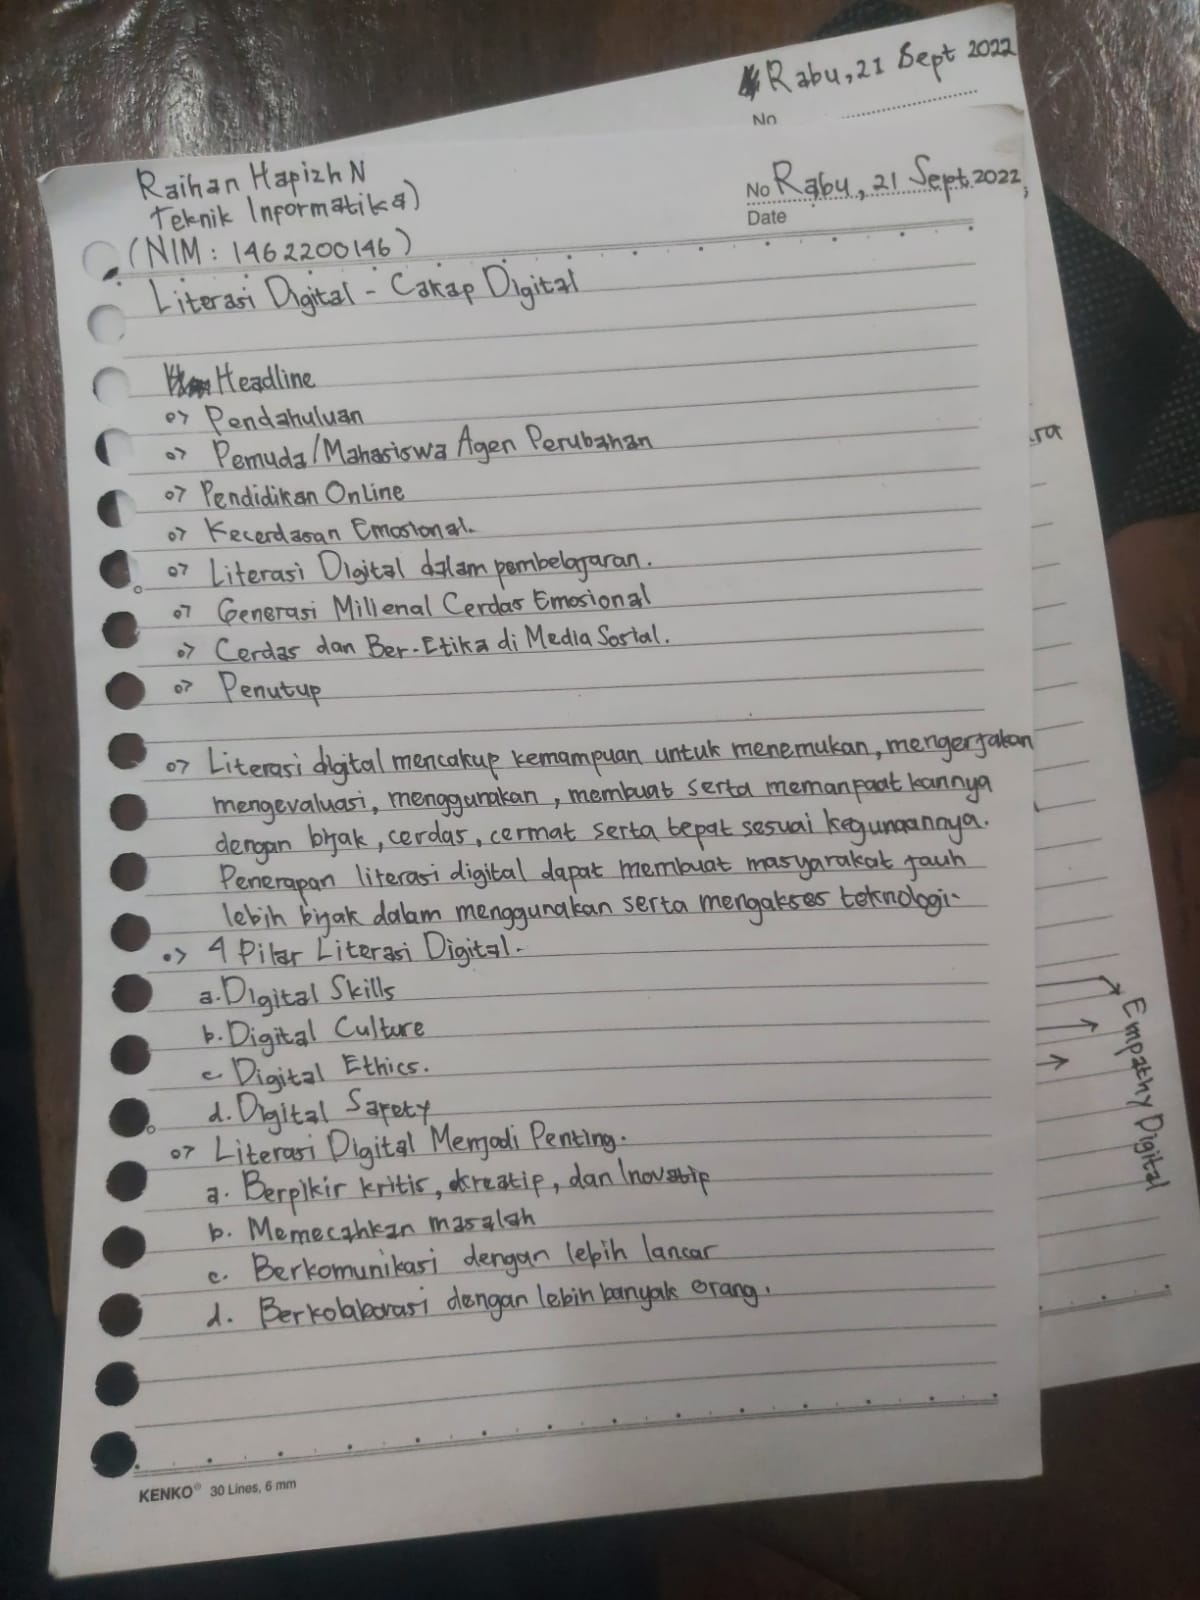 Rabu, 21 Sept 2022
No
Raihan Hapizh N
Teknik Informatika)
(NIM : 1462200146)
No Rabu, 21 Sept 2022
Date
Literasi Digital - Cakap Digital
Headline
Pendahuluan
Pemuda/Mahasiswa Agen Perubahan
Pendidikan Online
Kecerdasan Emosional.
Literasi Digital dalam pembelajaran.
Generasi Milienal Cerdas Emosional
Cerdas dan Ber-Etika di Media Sosial.
Penutup
Literasi digital mencakup kemampuan untuk menemukan, mengerjakan
mengevaluasi, menggunakan, membuat serta memanpaatkannya
dengan bijak, cerdas, cermat serta tepat sesuai kegunaannya.
Penerapan literasi digital dapat membuat masyarakat jauh
lebih bijak dalam menggunakan serta mengakses teknologi.
4 Pilar Literasi Digital.
a. Digital Skills
b. Digital Culture
c. Digital Ethics.
d. Digital Sapety
Literasi Digital Menjadi Penting.
a. Berpikir kritis, kreatip, dan Inovatip
b. Memecahkan masalah
c. Berkomunikasi dengan lebih lancar
d. Berkolaborasi dengan lebih banyak orang.
KENKO® 30 Lines, 6 mm
ra
Empathy Digital